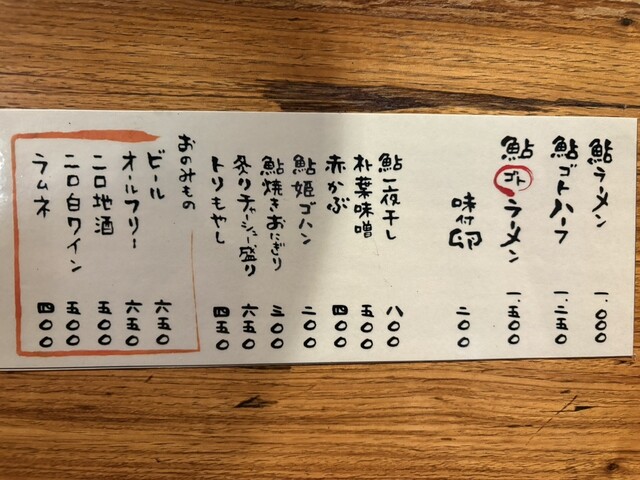 鮎ラーメン 一.〇〇〇
鮎ゴトハーフ 一.二五〇
鮎ゴトラーメン 一.五〇〇
味付卵 二〇〇
鮎一夜干し 八〇〇
朴葉味噌 五〇〇
赤かぶ 四〇〇
鮎姫ゴハン 二〇〇
鮎焼きおにぎり 三〇〇
炙りチャーシュー盛り 六五〇
トリもやし 四五〇
おのみもの
ビール 六五〇
オールフリー 六五〇
二口地酒 五〇〇
二口白ワイン 五〇〇
ラムネ 四〇〇